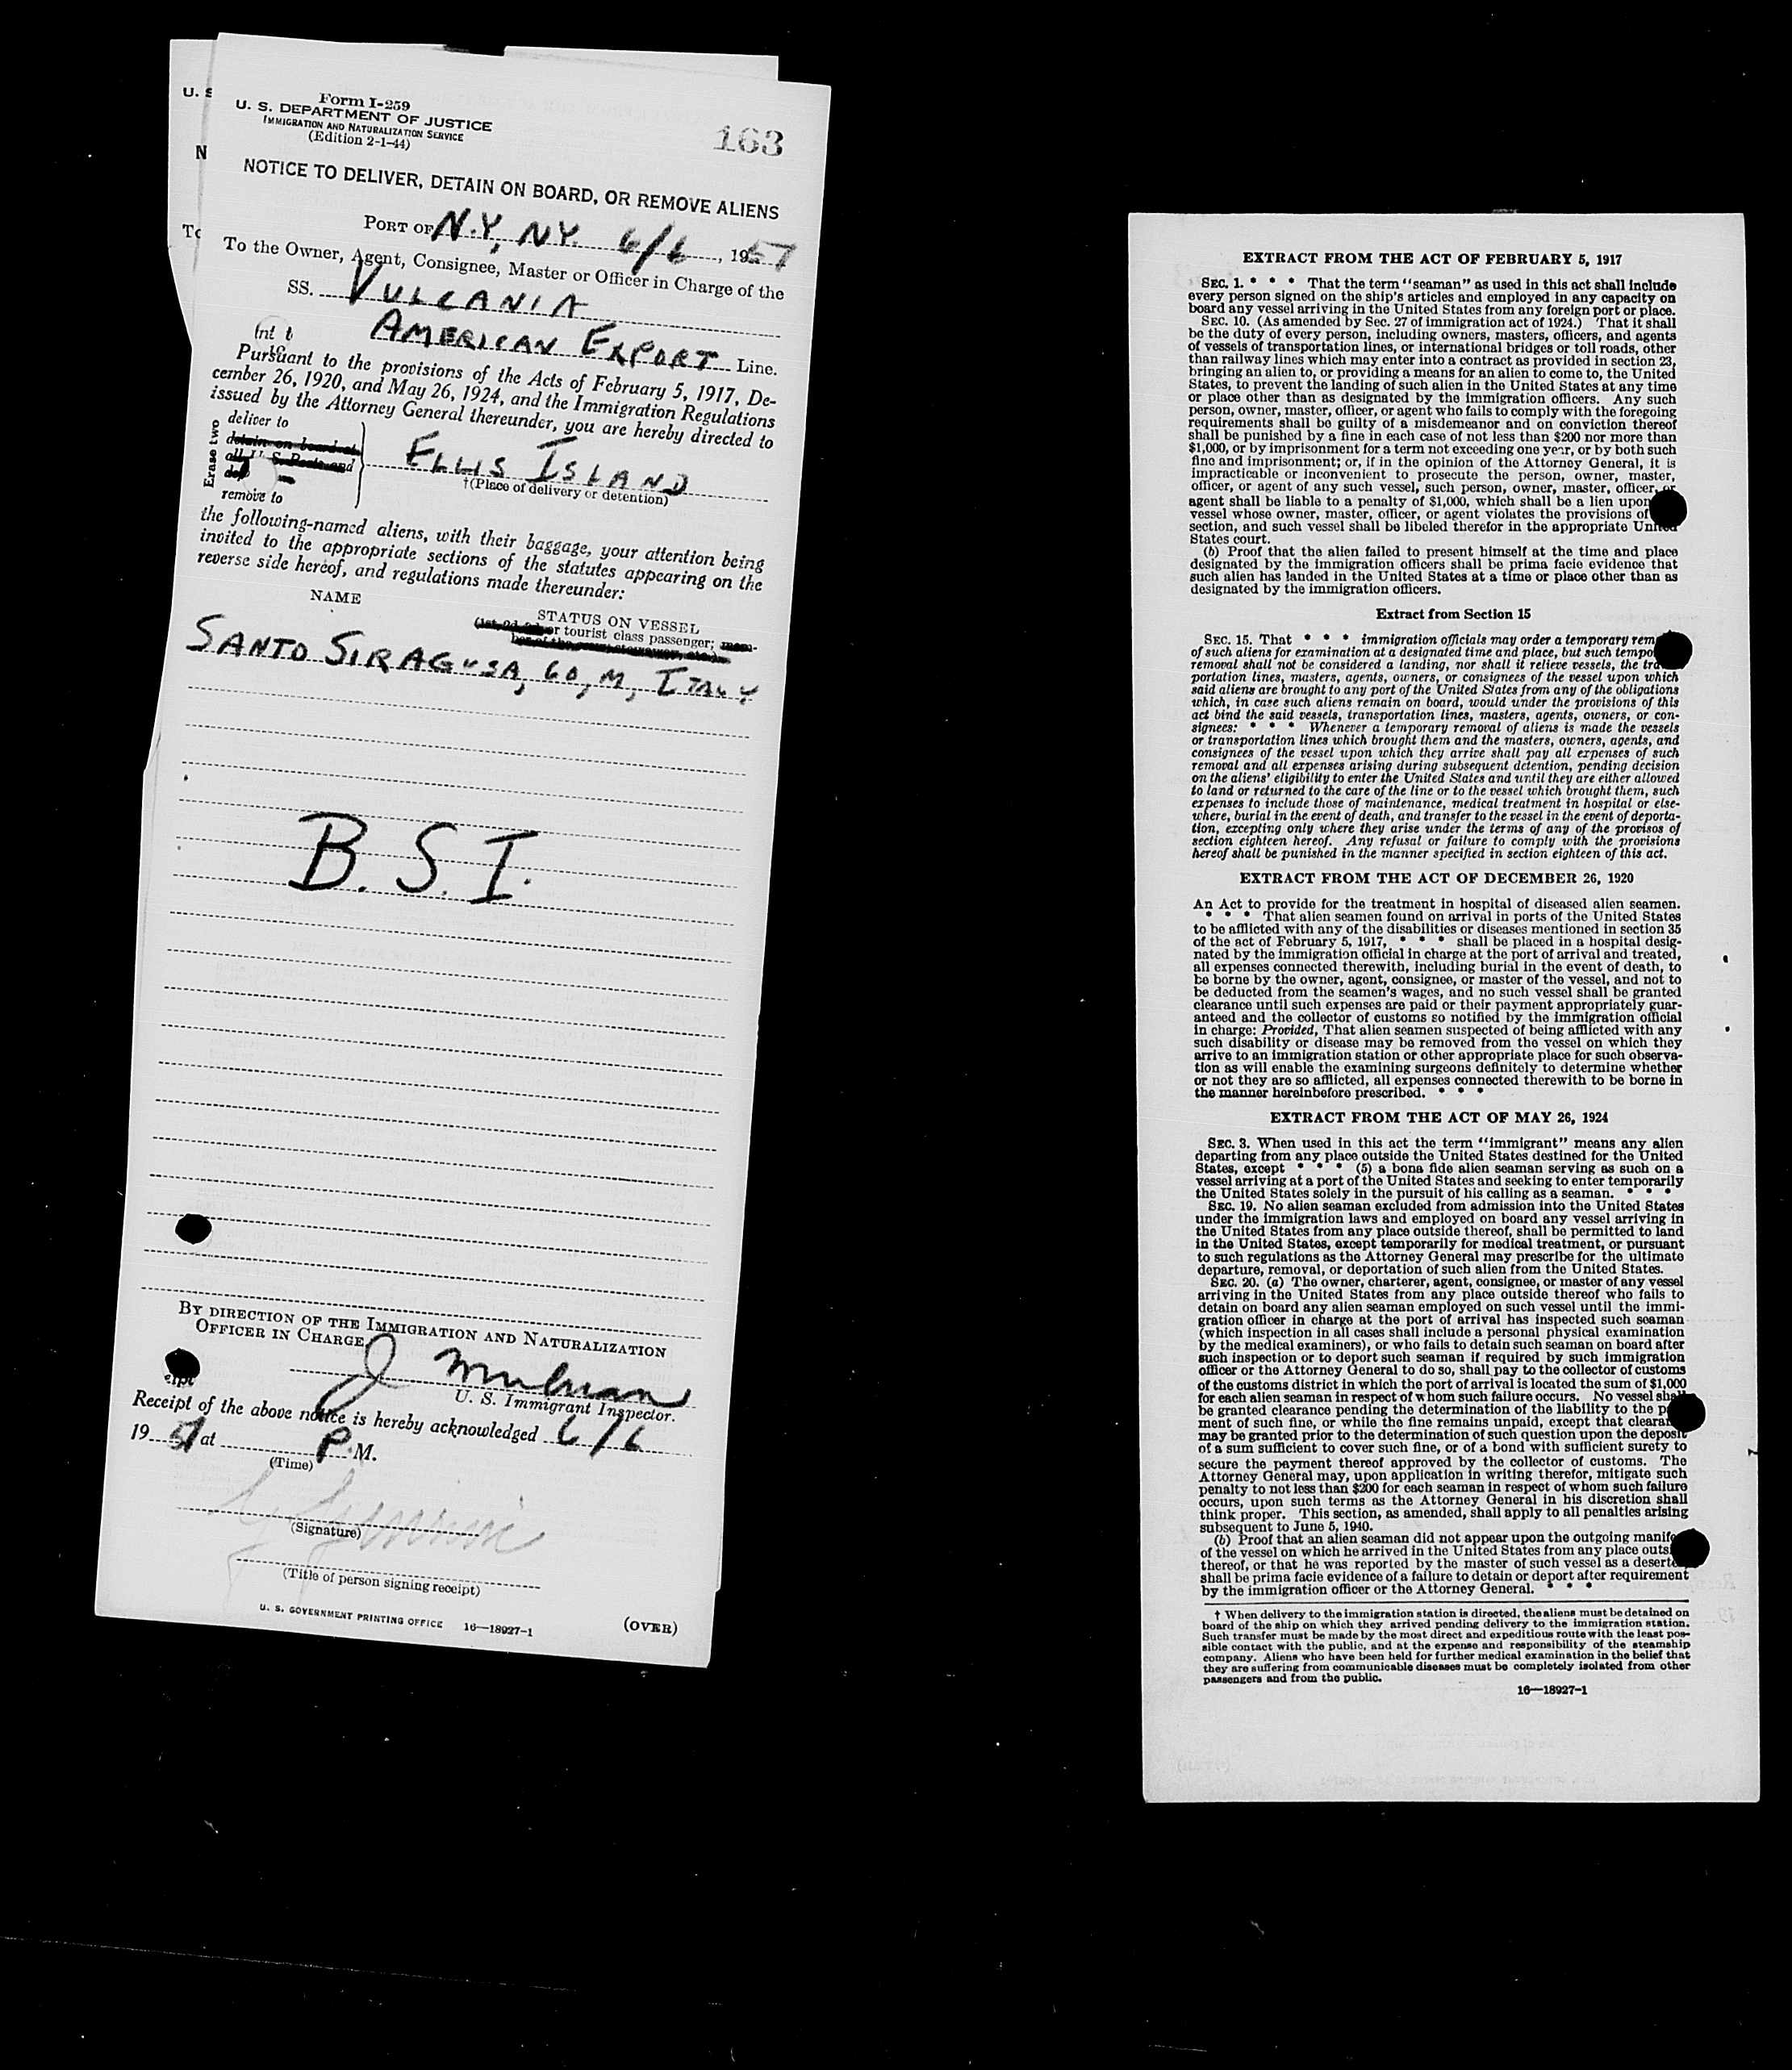 Form I-259
U. S. DEPARTMENT OF JUSTICE
IMMIGRATION AND NATURALIZATION SERVICE
(Edition 2-1-44)
163
NOTICE TO DELIVER, DETAIN ON BOARD, OR REMOVE ALIENS
PORT OF N.Y, NY. 6/6, 19
To the Owner, Agent, Consignee, Master or Officer in Charge of the
SS. VULCANIA
AMERICAN EXPORT Line.
Pursuant to the provisions of the Acts of February 5, 1917, De-
cember 26, 1920, and May 26, 1924, and the Immigration Regulations
issued by the Attorney General thereunder, you are hereby directed to
Erase two
deliver to
detain on board at
all U. S. Ports and
remove to
ELLIS ISLAND
†(Place of delivery or detention)
the following-named aliens, with their baggage, your attention being
invited to the appropriate sections of the statutes appearing on the
reverse side hereof, and regulations made thereunder:
NAME
STATUS ON VESSEL
or tourist class passenger;
SANTO SIRAGUSA, 60, M, ITALY
B. S. I.
BY DIRECTION OF THE IMMIGRATION AND NATURALIZATION
OFFICER IN CHARGE
U. S. Immigrant Inspector.
Receipt of the above notice is hereby acknowledged 6/6
19 at P. M.
(Time)
(Signature)
(Title of person signing receipt)
U. S. GOVERNMENT PRINTING OFFICE 16—18927-1
(OVER)
EXTRACT FROM THE ACT OF FEBRUARY 5, 1917
SEC. 1. * * * That the term "seaman" as used in this act shall include
every person signed on the ship's articles and employed in any capacity on
board any vessel arriving in the United States from any foreign port or place.
SEC. 10. (As amended by Sec. 27 of immigration act of 1924.) That it shall
be the duty of every person, including owners, masters, officers, and agents
of vessels of transportation lines, or international bridges or toll roads, other
than railway lines which may enter into a contract as provided in section 23,
bringing an alien to, or providing a means for an alien to come to, the United
States, to prevent the landing of such alien in the United States at any time
or place other than as designated by the immigration officers. Any such
person, owner, master, officer, or agent who fails to comply with the foregoing
requirements shall be guilty of a misdemeanor and on conviction thereof
shall be punished by a fine in each case of not less than $200 nor more than
$1,000, or by imprisonment for a term not exceeding one year, or by both such
fine and imprisonment; or, if in the opinion of the Attorney General, it is
impracticable or inconvenient to prosecute the person, owner, master,
officer, or agent of any such vessel, such person, owner, master, officer, or
agent shall be liable to a penalty of $1,000, which shall be a lien upon
vessel whose owner, master, officer, or agent violates the provisions of
section, and such vessel shall be libeled therefor in the appropriate United
States court.
(b) Proof that the alien failed to present himself at the time and place
designated by the immigration officers shall be prima facie evidence that
such alien has landed in the United States at a time or place other than as
designated by the immigration officers.
Extract from Section 15
SEC. 15. That * * * immigration officials may order a temporary
of such aliens for examination at a designated time and place, but such
removal shall not be considered a landing, nor shall it relieve vessels, the
portation lines, masters, agents, owners, or consignees of the vessel upon which
said aliens are brought to any port of the United States from any of the obligations
which, in case such aliens remain on board, would under the provisions of this
act bind the said vessels, transportation lines, masters, agents, owners, or con-
signees: * * * Whenever a temporary removal of aliens is made the vessels
or transportation lines which brought them and the masters, owners, agents, and
consignees of the vessel upon which they arrive shall pay all expenses of such
removal and all expenses arising during subsequent detention, pending decision
on the aliens' eligibility to enter the United States and until they are either allowed
to land or returned to the care of the line or to the vessel which brought them, such
expenses to include those of maintenance, medical treatment in hospital or else-
where, burial in the event of death, and transfer to the vessel in the event of deporta-
tion, excepting only where they arise under the terms of any of the provisos of
section eighteen hereof. Any refusal or failure to comply with the provisions
hereof shall be punished in the manner specified in section eighteen of this act.
EXTRACT FROM THE ACT OF DECEMBER 26, 1920
An Act to provide for the treatment in hospital of diseased alien seamen.
* * * That alien seamen found on arrival in ports of the United States
to be afflicted with any of the disabilities or diseases mentioned in section 35
of the act of February 5, 1917, * * * shall be placed in a hospital desig-
nated by the immigration official in charge at the port of arrival and treated,
all expenses connected therewith, including burial in the event of death, to
be borne by the owner, agent, consignee, or master of the vessel, and not to
be deducted from the seamen's wages, and no such vessel shall be granted
clearance until such expenses are paid or their payment appropriately guar-
anteed and the collector of customs so notified by the immigration official
in charge: Provided, That alien seamen suspected of being afflicted with any
such disability or disease may be removed from the vessel on which they
arrive to an immigration station or other appropriate place for such observa-
tion as will enable the examining surgeons definitely to determine whether
or not they are so afflicted, all expenses connected therewith to be borne in
the manner hereinbefore prescribed. * * *
EXTRACT FROM THE ACT OF MAY 26, 1924
SEC. 3. When used in this act the term "immigrant" means any alien
departing from any place outside the United States destined for the United
States, except * * * (5) a bona fide alien seaman serving as such on a
vessel arriving at a port of the United States and seeking to enter temporarily
the United States solely in the pursuit of his calling as a seaman. * * *
SEC. 19. No alien seaman excluded from admission into the United States
under the immigration laws and employed on board any vessel arriving in
the United States from any place outside thereof, shall be permitted to land
in the United States, except temporarily for medical treatment, or pursuant
to such regulations as the Attorney General may prescribe for the ultimate
departure, removal, or deportation of such alien from the United States.
SEC. 20. (a) The owner, charterer, agent, consignee, or master of any vessel
arriving in the United States from any place outside thereof who fails to
detain on board any alien seaman employed on such vessel until the immi-
gration officer in charge at the port of arrival has inspected such seaman
(which inspection in all cases shall include a personal physical examination
by the medical examiners), or who fails to detain such seaman on board after
such inspection or to deport such seaman if required by such immigration
officer or the Attorney General to do so, shall pay to the collector of customs
of the customs district in which the port of arrival is located the sum of $1,000
for each alien seaman in respect of whom such failure occurs. No vessel shall
be granted clearance pending the determination of the liability to the
ment of such fine, or while the fine remains unpaid, except that
may be granted prior to the determination of such question upon the deposit
of a sum sufficient to cover such fine, or of a bond with sufficient surety to
secure the payment thereof approved by the collector of customs. The
Attorney General may, upon application in writing therefor, mitigate such
penalty to not less than $200 for each seaman in respect of whom such failure
occurs, upon such terms as the Attorney General in his discretion shall
think proper. This section, as amended, shall apply to all penalties arising
subsequent to June 5, 1940.
(b) Proof that an alien seaman did not appear upon the outgoing
of the vessel on which he arrived in the United States from any place
thereof, or that he was reported by the master of such vessel as a
shall be prima facie evidence of a failure to detain or deport after requirement
by the immigration officer or the Attorney General. * * *
† When delivery to the immigration station is directed, the aliens must be detained on
board of the ship on which they arrived pending delivery to the immigration station.
Such transfer must be made by the most direct and expeditious route with the least pos-
sible contact with the public, and at the expense and responsibility of the steamship
company. Aliens who have been held for further medical examination in the belief that
they are suffering from communicable diseases must be completely isolated from other
passengers and from the public.
16—18927-1